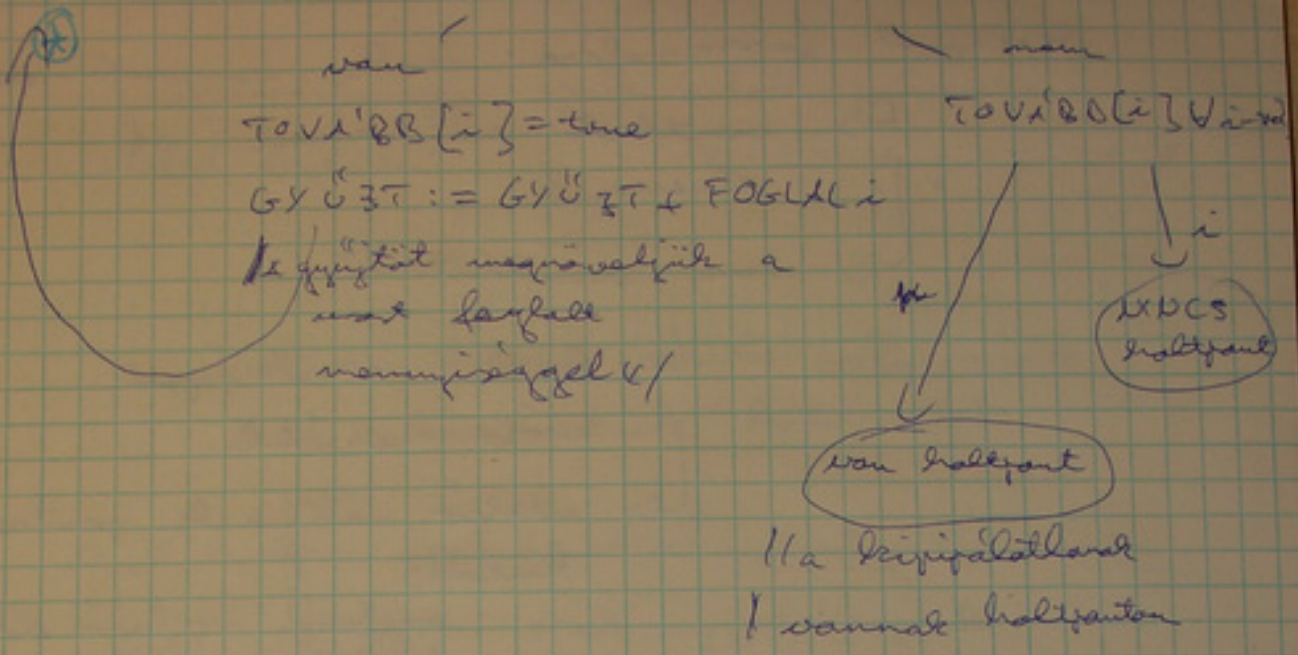 van
TOVÁBB[i]=true
GYŰJT := GYŰJT + FOGLAL i
/* gyűjtőt megnöveljük a
most foglalt
mennyiséggel */
nem
TOVÁBB[i] ∀ i-re
i
NINCS
holtpont
van holtpont
// a kipipálatlanok
/ vannak holtponton